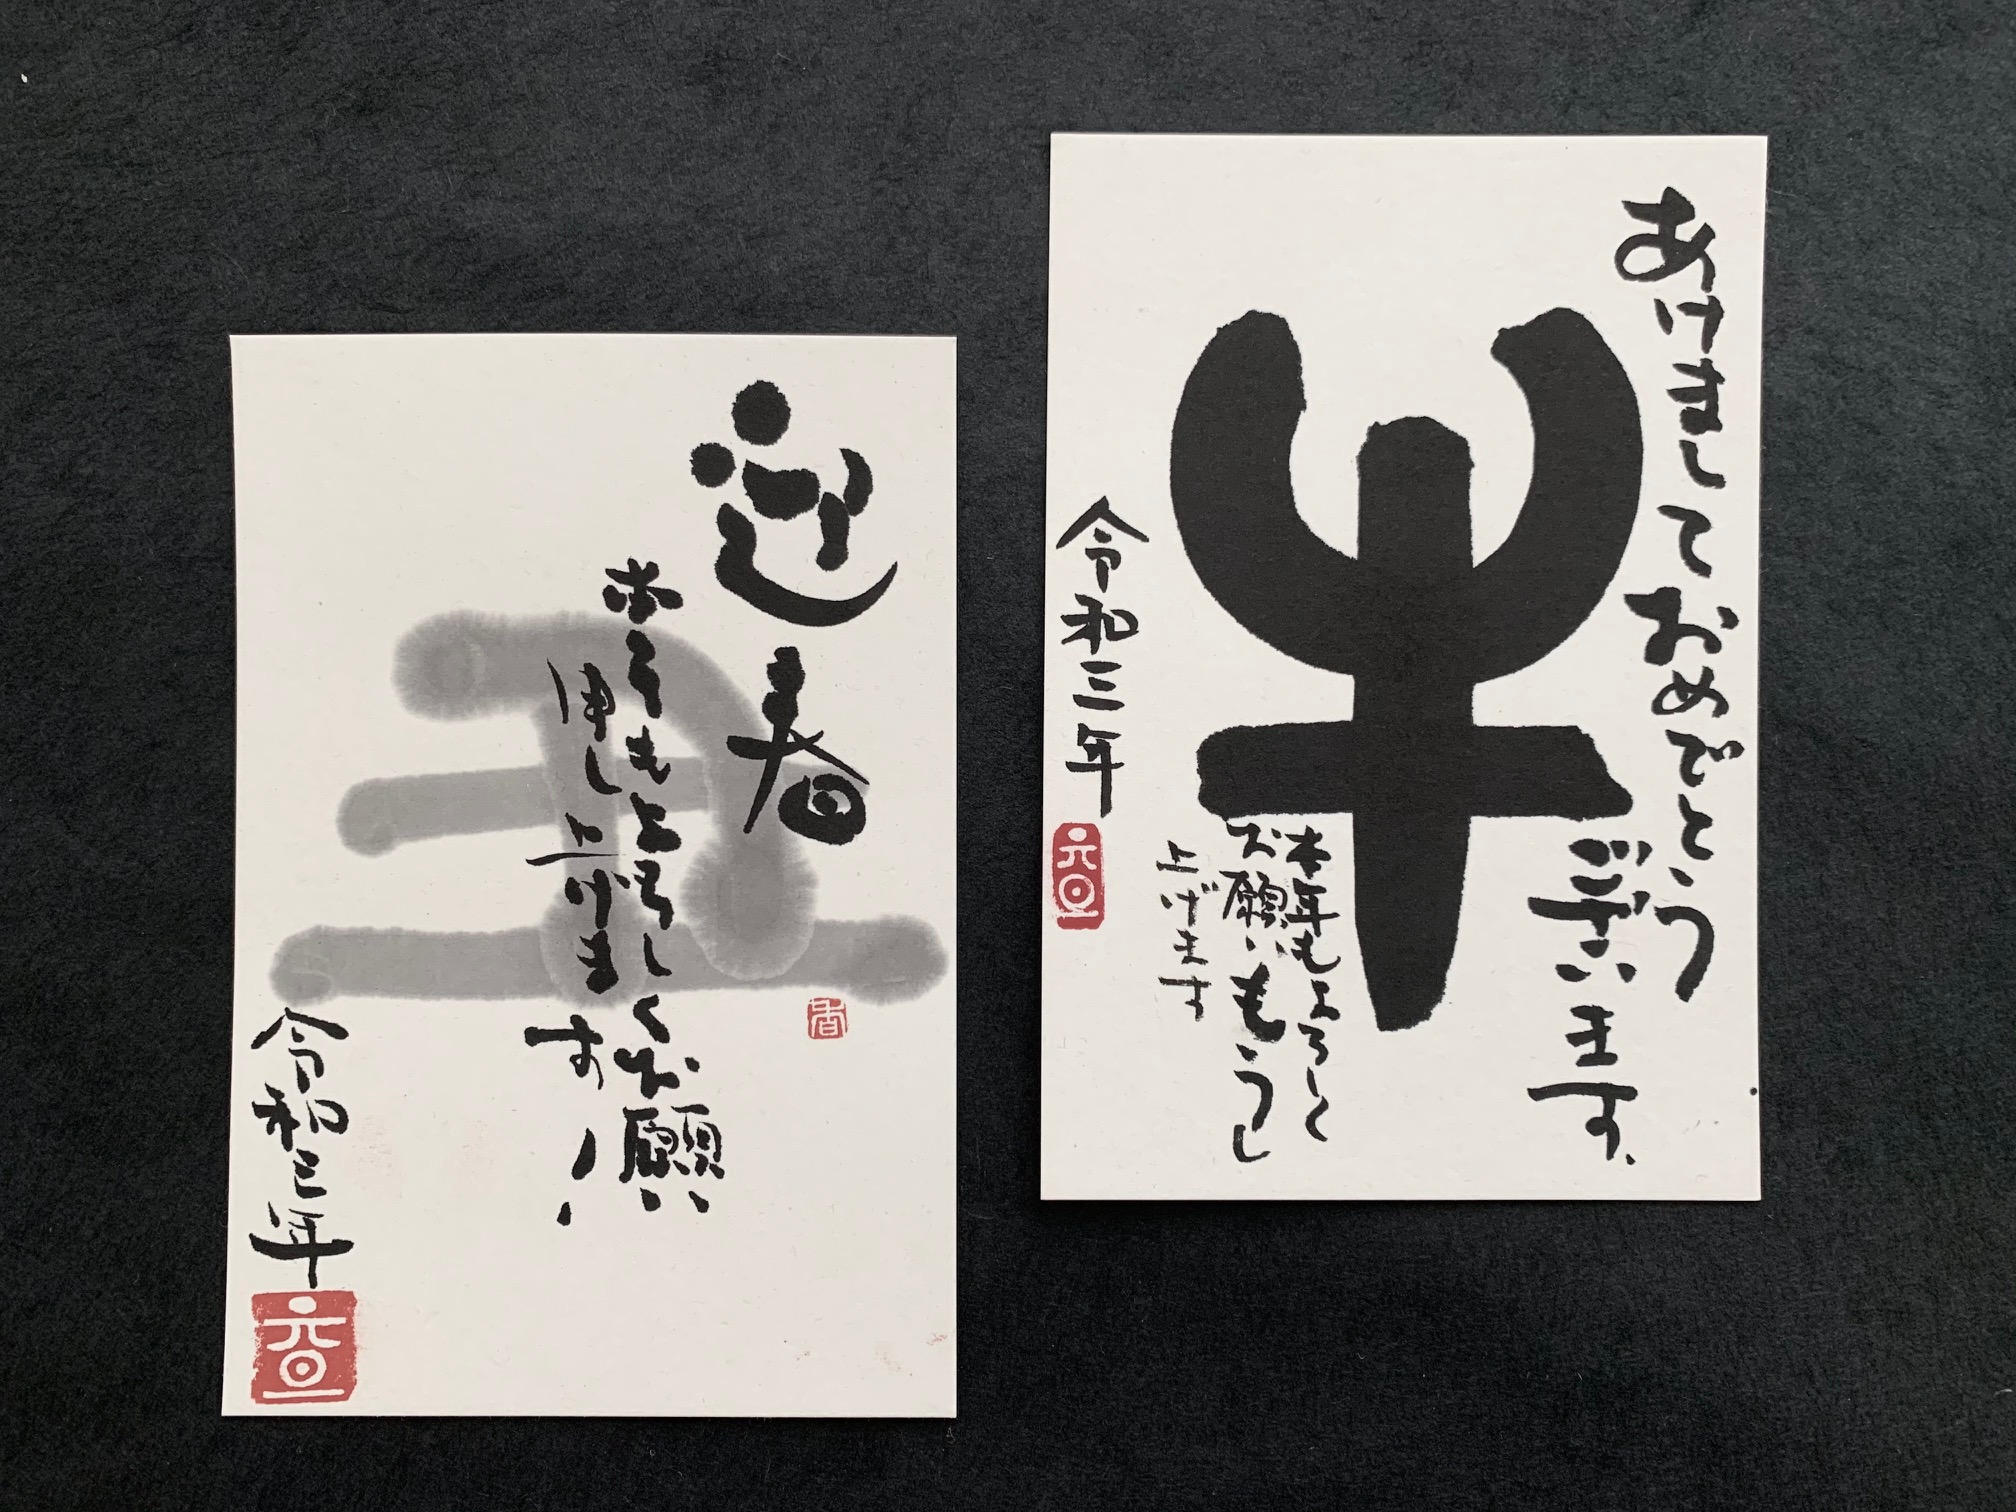 迎春
本年もよろしくお願い
申し上げます
令和三年
元旦
春
あけましておめでとう
ございます。
牛
本年もよろしく
お願いもうし
上げます
令和三年
元旦